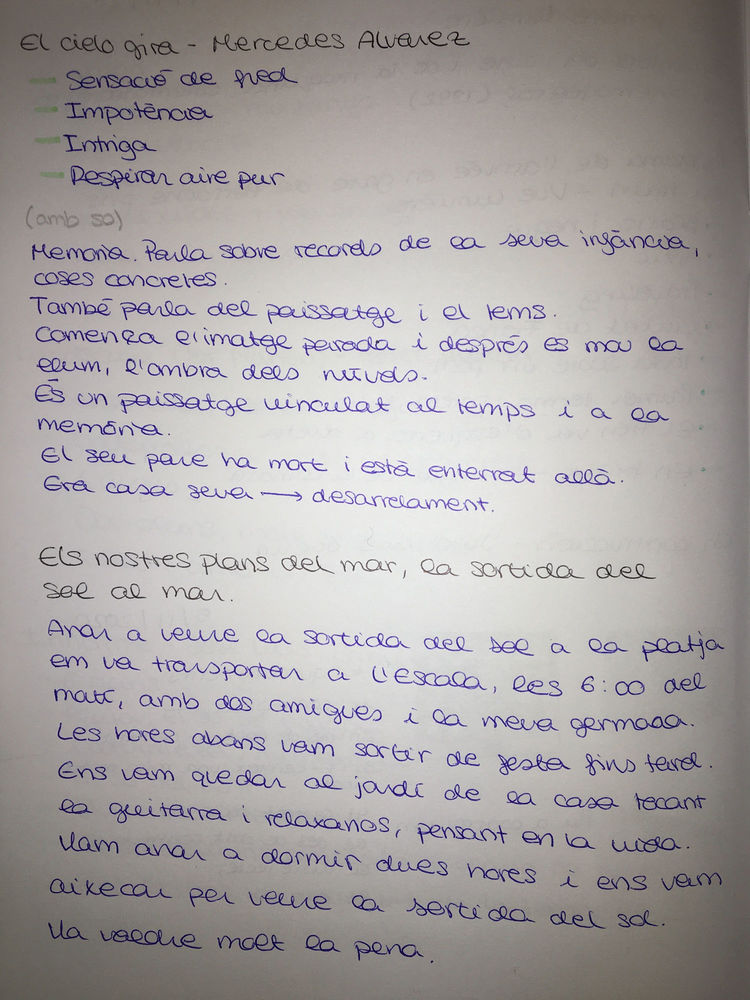 El cielo gira - Mercedes Alvarez
- Sensació de fred
- Impotència
- Intriga
- Respirar aire pur
(amb so)
Memoria. Parla sobre records de la seva infància,
coses concretes.
També parla del paissatge i el tems.
Comença l'imatge parada i després es mou la
llum, l'ombra dels núvols.
És un paissatge vinculat al temps i a la
memòria.
El seu pare ha mort i està enterrat allà.
Era casa seva → desarrelament.
Els nostres plans del mar, la sortida del
sol al mar.
Anar a veure la sortida del sol a la platja
em va transportar a l'Escala, les 6:00 del
matí, amb dos amigues i la meva germana.
Les hores abans vam sortir de festa fins tard.
Ens vam quedar al jardí de la casa tocant
la guitarra i relaxanos, pensant en la vida.
Vam anar a dormir dues hores i ens vam
aixecar per veure la sortida del sol.
Va valdre molt la pena.